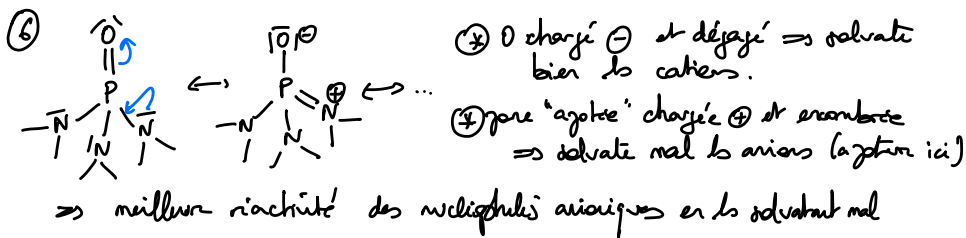 ⑥
O
P
N
N
N
↔
O ⊖
P
N
N
N ⊕
↔ ...
⊛ O chargé ⊖ et dégagé => solvate
bien les cations.
⊛ zone "azotée" chargée ⊕ et encombrée
=> solvate mal les anions (azoture ici)
=> meilleure réactivité des nucléophiles anioniques en les solvatant mal